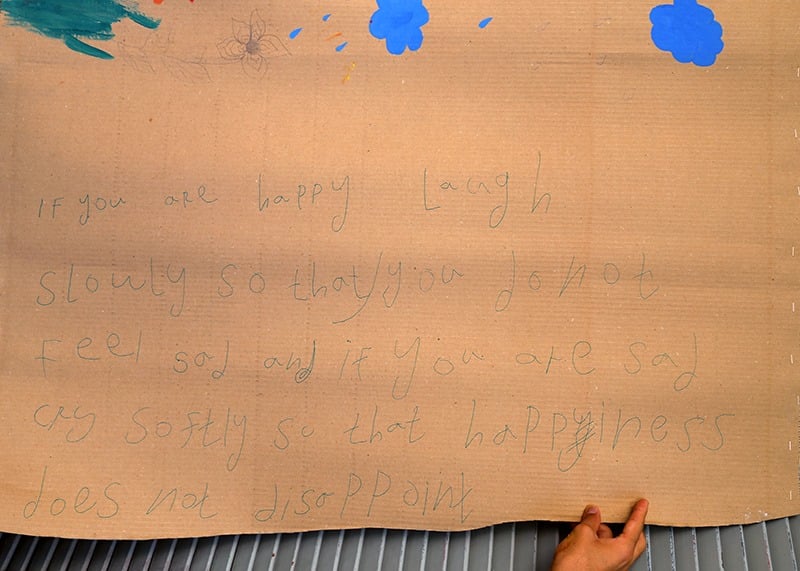 If you are happy Laugh
slowly so that you do not
Feel sad and if you are sad
cry softly so that happiness
does not disappoint